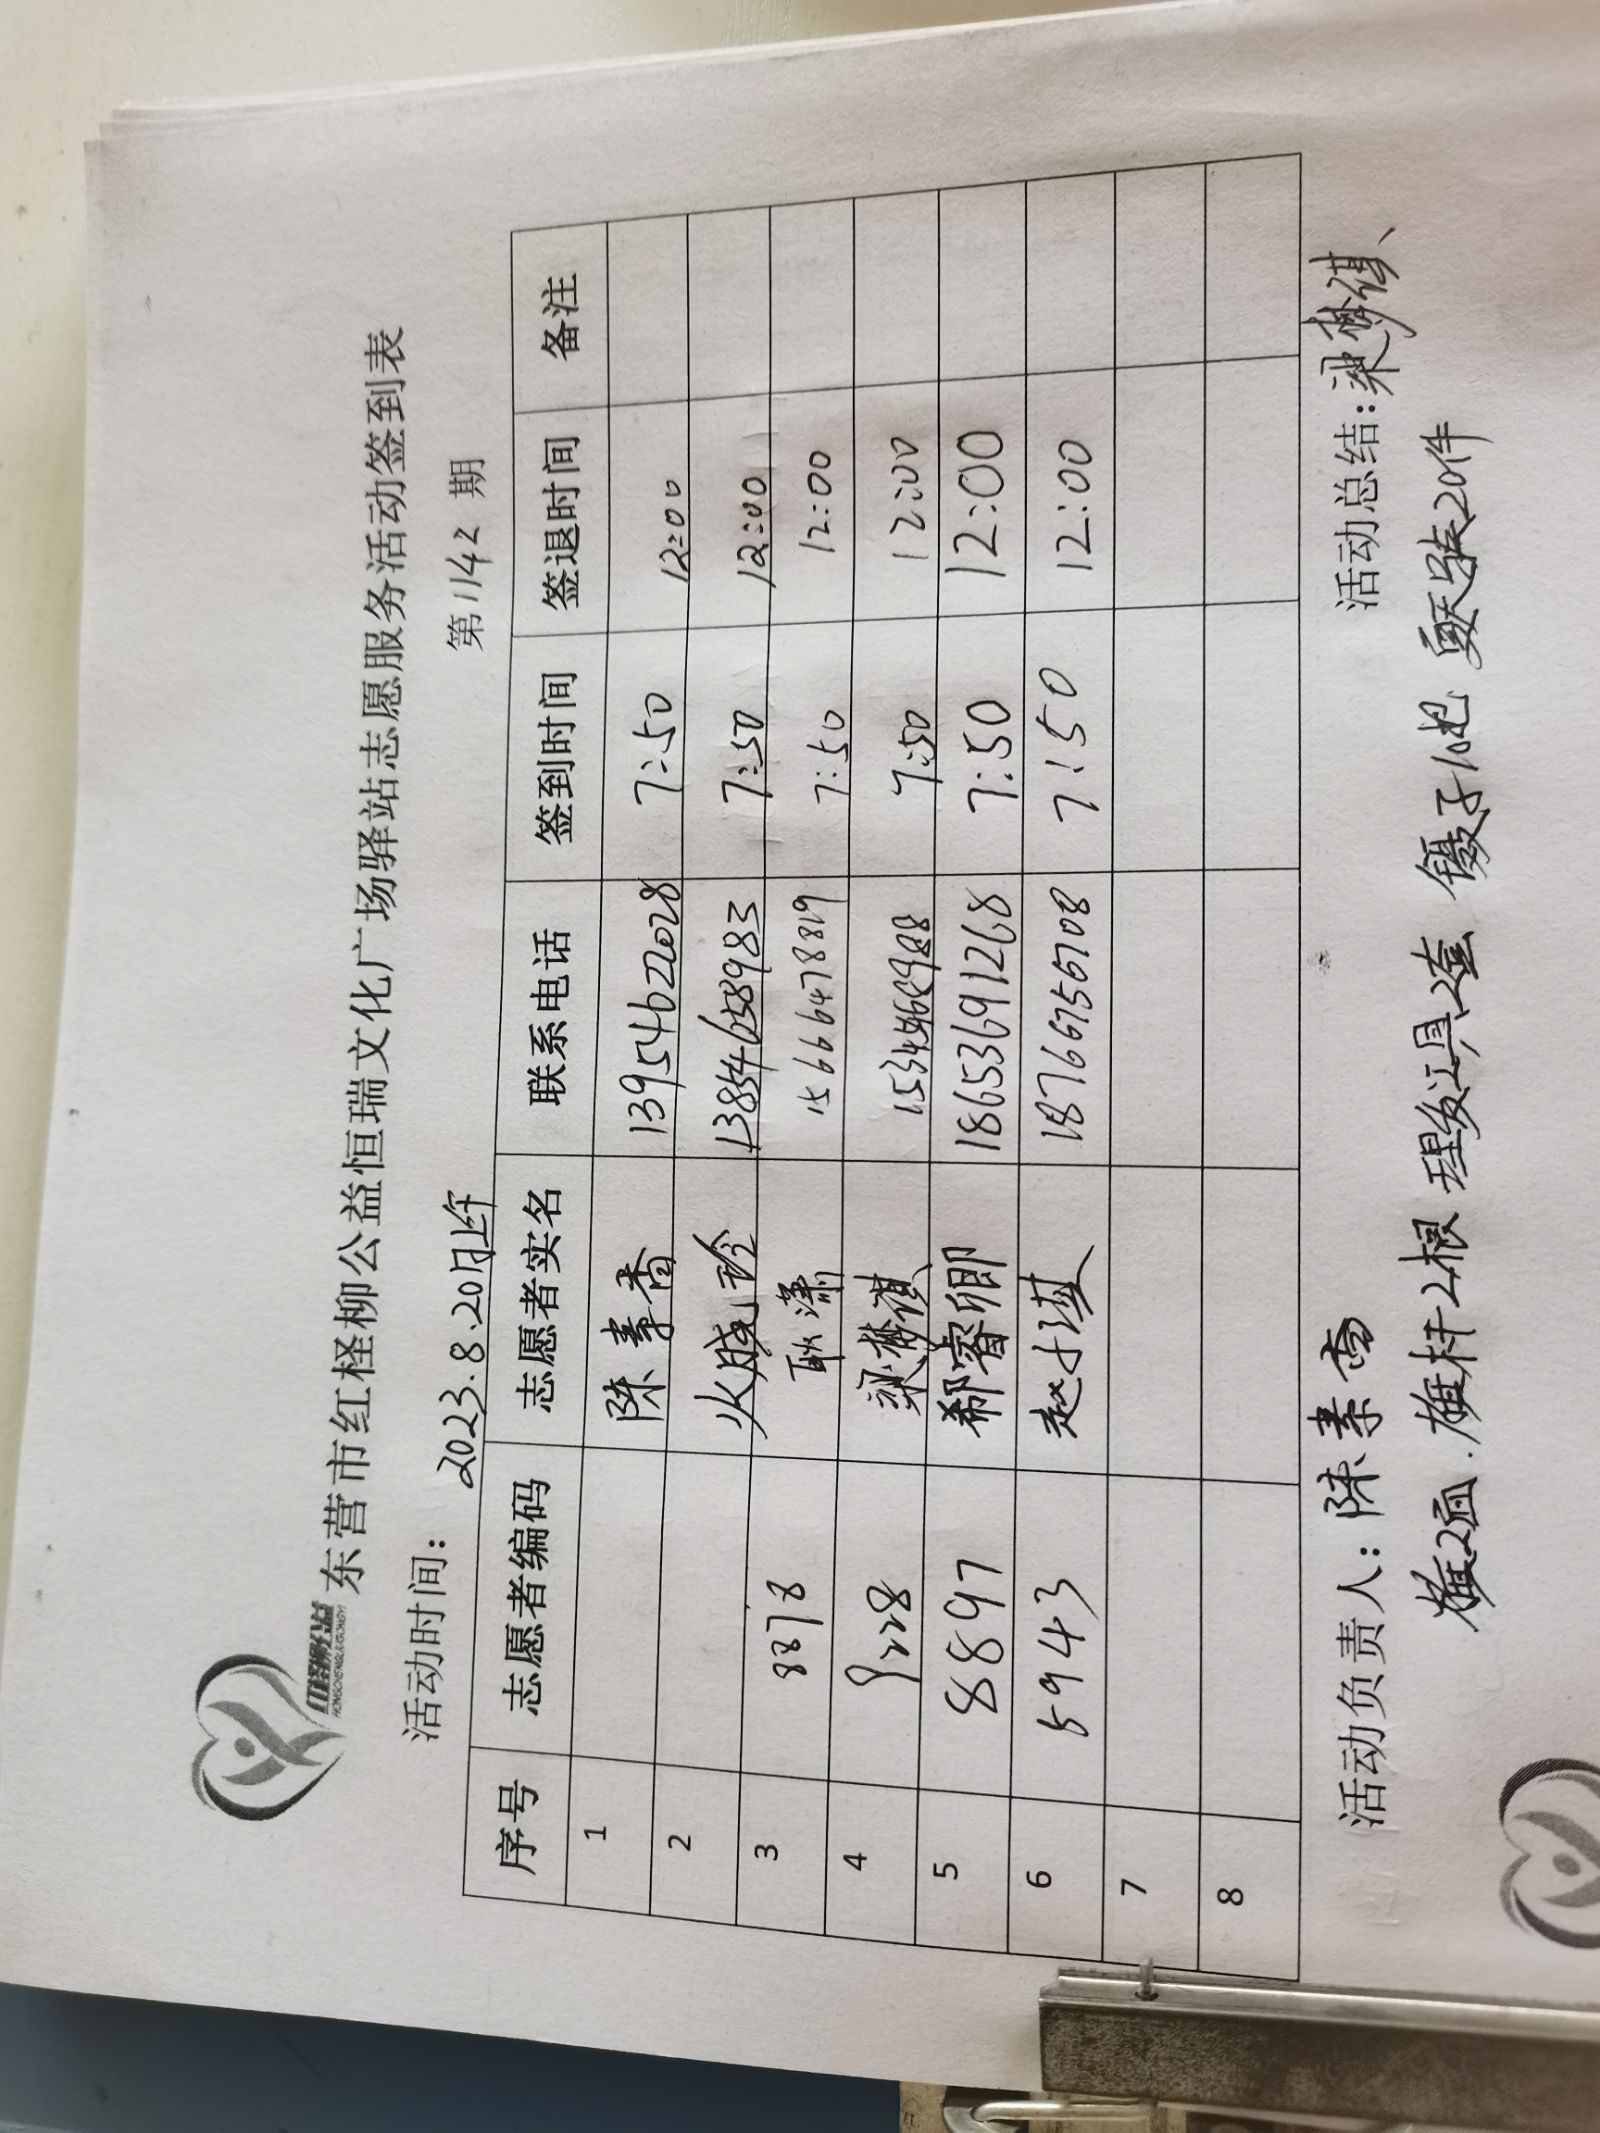 红柽柳公益
HONGCHENGLIUGONGYI
东营市红柽柳公益恒瑞文化广场驿站志愿服务活动签到表
活动时间: 2023.8.20日上午 第1142期
序号 志愿者编码 志愿者实名 联系电话 签到时间 签退时间 备注
1 陈素香 13954622028 7:50 12:00
2 玲 13854658983 7:50 12:00
3 8878 耿潇 15666478819 7:50 12:00
4 9228 梁梦祺 7:50 12:00
5 8897 郗睿卿 18653691268 7:50 12:00
6 5943 赵子琪 18766756708 7:50 12:00
7
8
活动负责人: 陈素香 活动总结: 梁梦祺、
旗2面. 旗杆2根 理发工具2套 镊子1把 20件